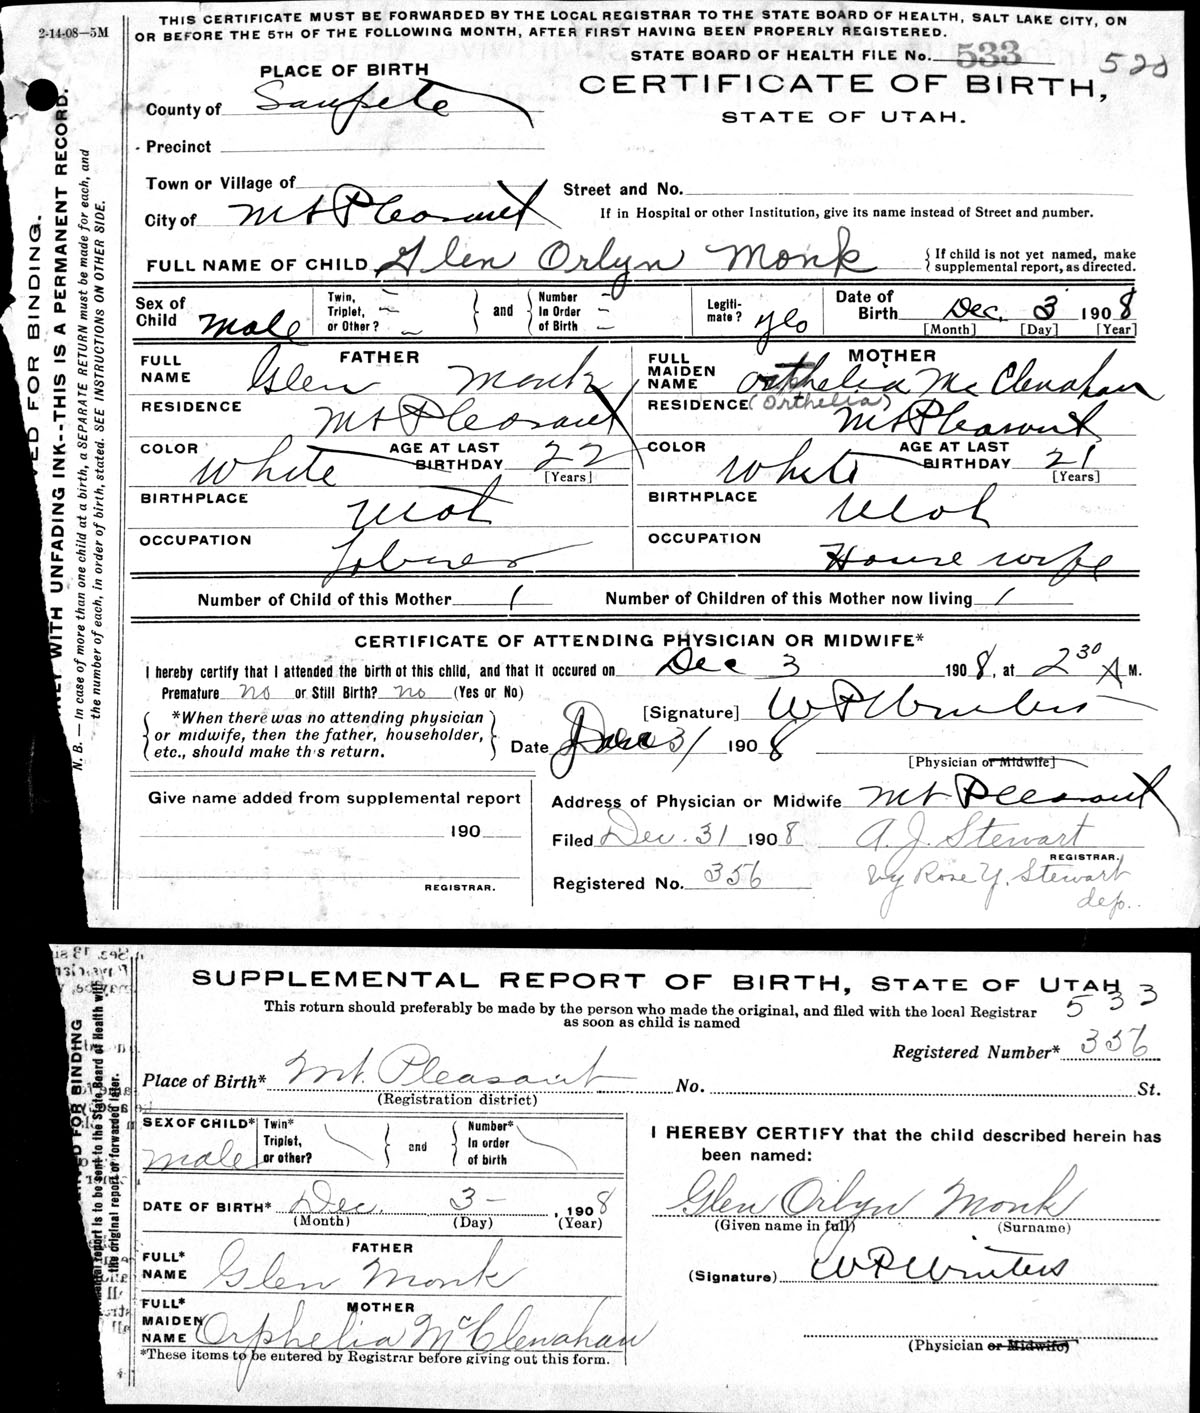 THIS CERTIFICATE MUST BE FORWARDED BY THE LOCAL REGISTRAR TO THE STATE BOARD OF HEALTH, SALT LAKE CITY, ON
OR BEFORE THE 5TH OF THE FOLLOWING MONTH, AFTER FIRST HAVING BEEN PROPERLY REGISTERED.
2-14-08—5M
STATE BOARD OF HEALTH FILE No. 533
PLACE OF BIRTH
CERTIFICATE OF BIRTH,
STATE OF UTAH.
County of Sanpete
Precinct
Town or Village of
Street and No.
City of Mt Pleasant
If in Hospital or other Institution, give its name instead of Street and number.
FULL NAME OF CHILD Glen Orlyn Monk
{If child is not yet named, make
supplemental report, as directed.
Sex of Child Male
Twin, Triplet, or Other?
and
Number In Order of Birth
Legiti-mate? yes
Date of Birth Dec. 3 1908
[Month] [Day] [Year]
FATHER
FULL NAME Glen Monk
MOTHER
FULL MAIDEN NAME Orthelia McClenahan
(Orthelia)
RESIDENCE Mt Pleasant
RESIDENCE Mt Pleasant
COLOR White AGE AT LAST BIRTHDAY 22 [Years]
COLOR White AGE AT LAST BIRTHDAY 21 [Years]
BIRTHPLACE Utah
BIRTHPLACE Utah
OCCUPATION Laborer
OCCUPATION House wife
Number of Child of this Mother 1 Number of Children of this Mother now living 1
CERTIFICATE OF ATTENDING PHYSICIAN OR MIDWIFE*
I hereby certify that I attended the birth of this child, and that it occured on Dec 3 1908, at 2 30 A M.
Premature no or Still Birth? no (Yes or No)
*When there was no attending physician
or midwife, then the father, householder,
etc., should make this return.
[Signature] W P Winters
Date Dec 31 1908
[Physician or Midwife]
Give name added from supplemental report
190
REGISTRAR.
Address of Physician or Midwife Mt Pleasant
Filed Dec. 31 1908 A. J. Stewart
REGISTRAR.
Registered No. 356 by Rose Y. Stewart
dep.
WITH UNFADING INK--THIS IS A PERMANENT RECORD.
N. B. — In case of more than one child at a birth, a SEPARATE RETURN must be made for each, and
the number of each, in order of birth, stated. SEE INSTRUCTIONS ON OTHER SIDE.
FOR BINDING.
SUPPLEMENTAL REPORT OF BIRTH, STATE OF UTAH
533
This return should preferably be made by the person who made the original, and filed with the local Registrar
as soon as child is named
Registered Number* 356
Place of Birth* Mt. Pleasant No. St.
(Registration district)
SEX OF CHILD* Male
Twin* Triplet, or other?
and
Number* In order of birth
I HEREBY CERTIFY that the child described herein has
been named:
Glen Orlyn Monk
(Given name in full) (Surname)
DATE OF BIRTH* Dec. 3 - , 1908
(Month) (Day) (Year)
FATHER
FULL* NAME Glen Monk
(Signature) W P Winters
MOTHER
FULL* MAIDEN NAME Orphelia McClenahan
(Physician or Midwife)
*These items to be entered by Registrar before giving out this form.
FOR BINDING
report is to be sent to the State Board of Health with
the original report or forwarded later.